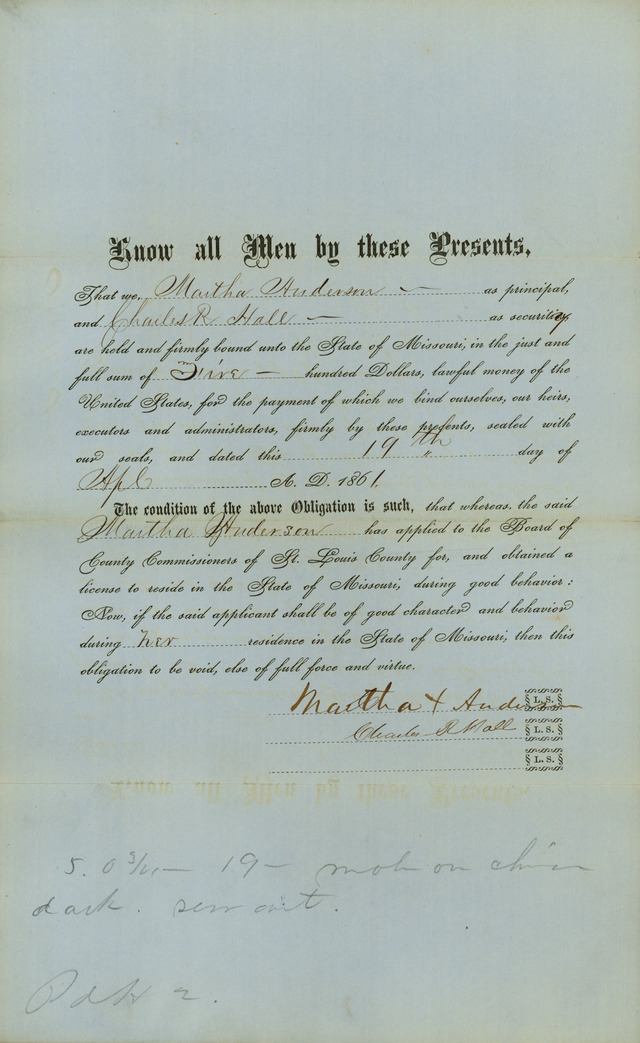 Know all Men by these Presents,
That we, Martha Anderson — as principal,
and Charles R Hall — as security
are held and firmly bound unto the State of Missouri, in the just and
full sum of Five — hundred Dollars, lawful money of the
United States, for the payment of which we bind ourselves, our heirs,
executors and administrators, firmly by these presents, sealed with
our seals, and dated this 19th day of
Apl A. D. 1861.
The condition of the above Obligation is such, that whereas, the said
Martha Anderson has applied to the Board of
County Commissioners of St. Louis County for, and obtained a
license to reside in the State of Missouri, during good behavior:
Now, if the said applicant shall be of good character and behavior
during her residence in the State of Missouri, then this
obligation to be void, else of full force and virtue.
Martha X Anderson L. S.
Charles R Hall L. S.
L. S.
5. 0 — 19 — mole on chin
dark. servant.
Pd 2.